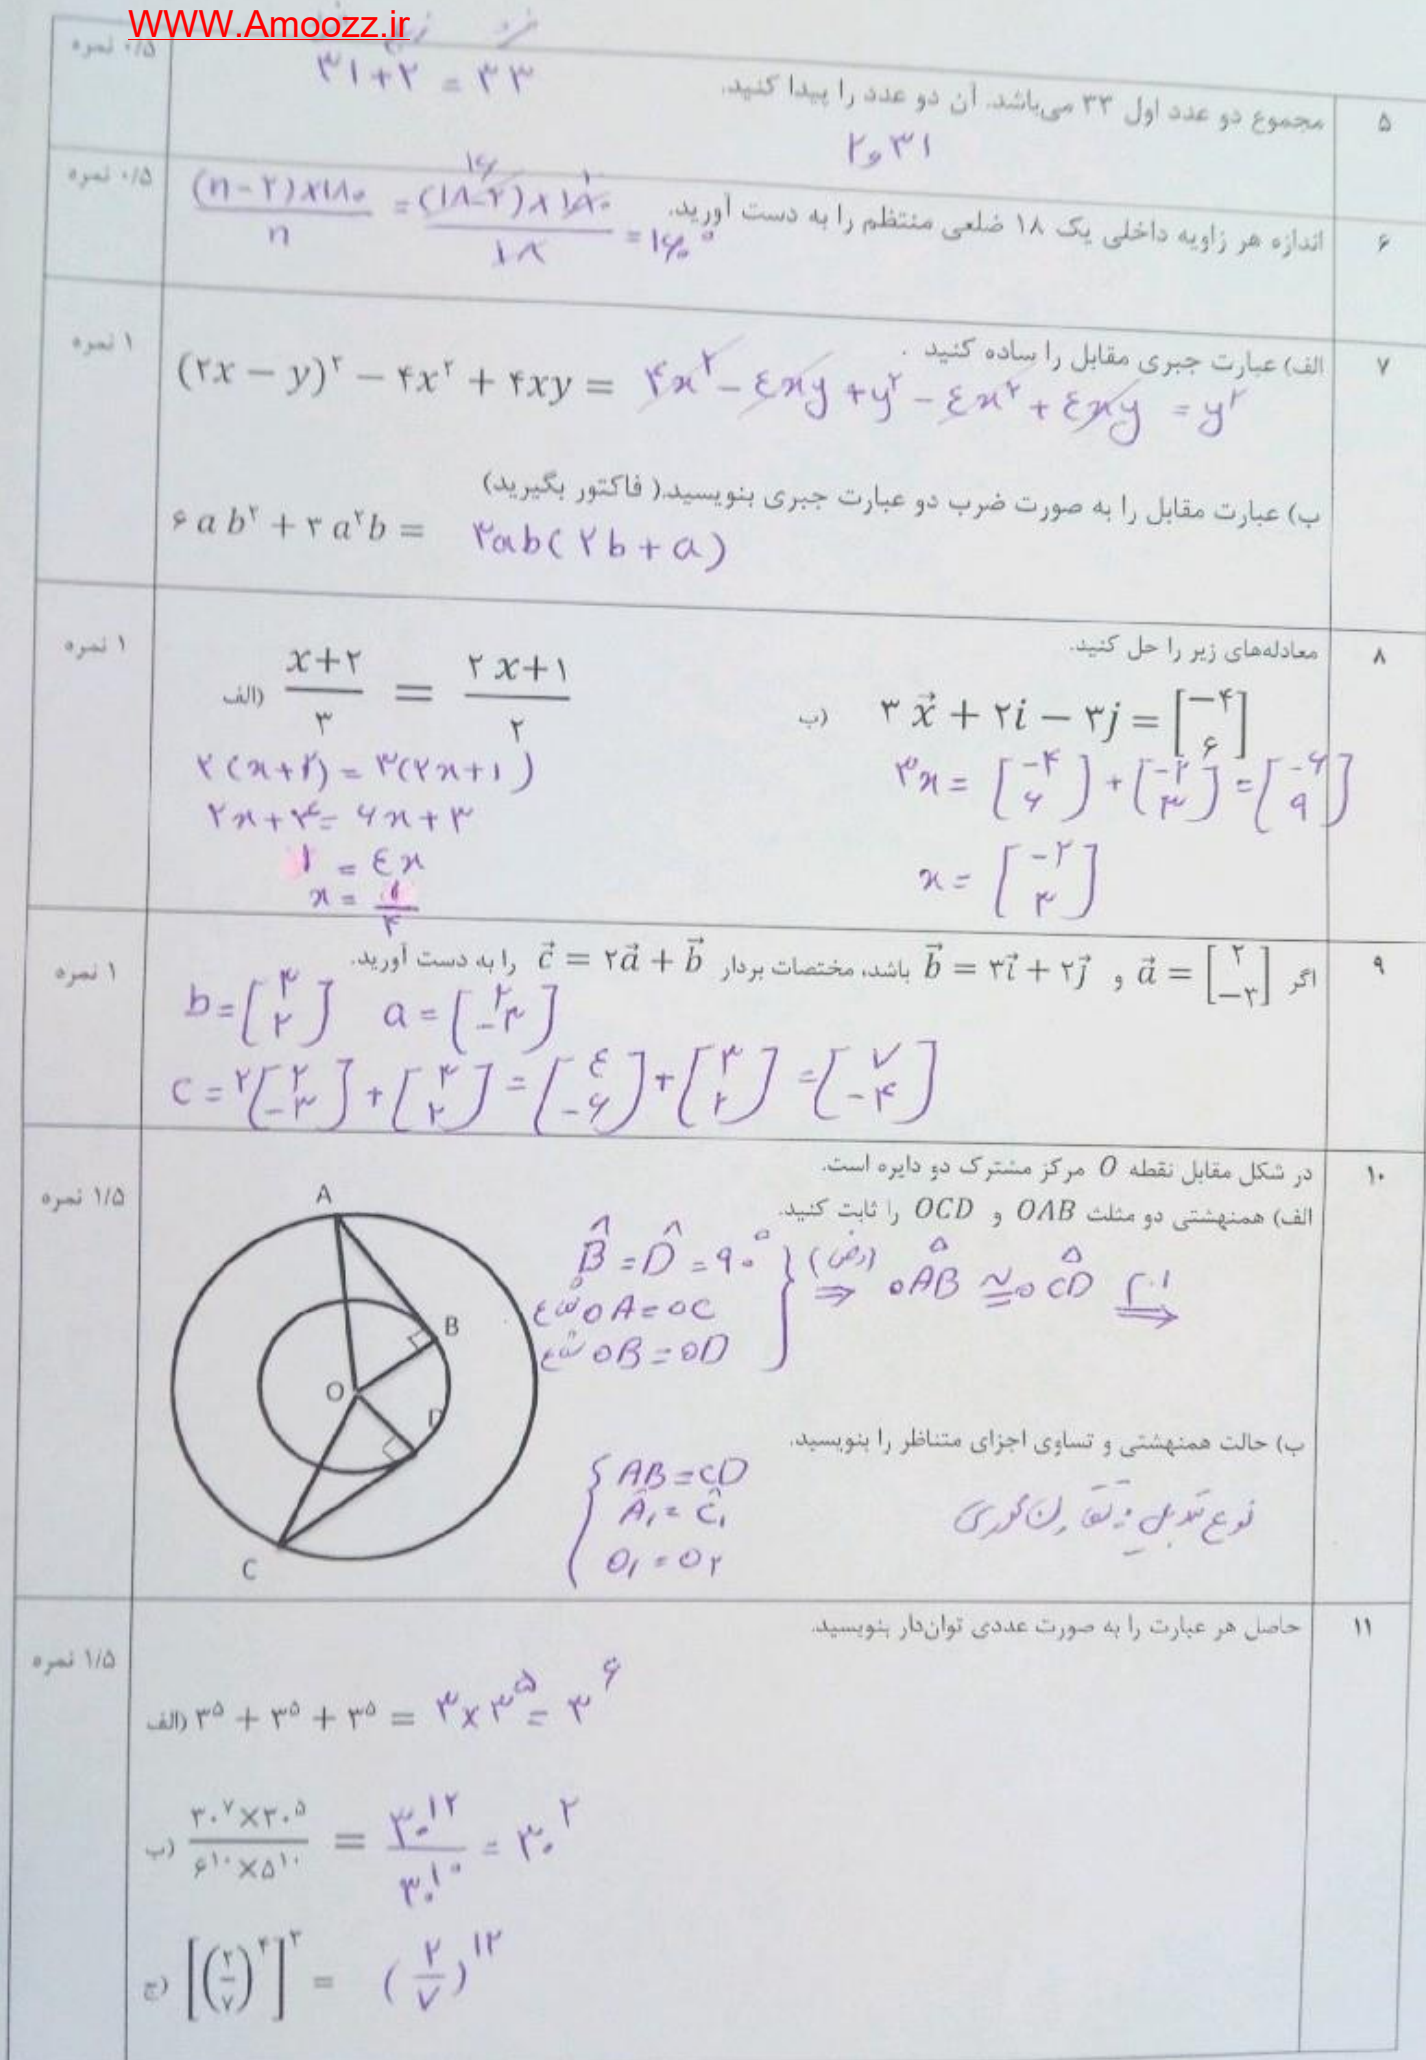 WWW.Amoozz.ir
۵
مجموع دو عدد اول ۳۳ می‌باشد. آن دو عدد را پیدا کنید.
۰/۵ نمره
۳۱+۲ = ۳۳
۲ و ۳۱
۶
اندازه هر زاویه داخلی یک ۱۸ ضلعی منتظم را به دست آورید.
۰/۵ نمره
(n-۲)×۱۸۰ / n = (۱۸-۲)×۱۸۰ / ۱۸ = ۱۶۰°
۷
الف) عبارت جبری مقابل را ساده کنید .
۱ نمره
(۲x − y)^۲ − ۴x^۲ + ۴xy = ۴x^۲ - ۴xy + y^۲ - ۴x^۲ + ۴xy = y^۲
ب) عبارت مقابل را به صورت ضرب دو عبارت جبری بنویسید.( فاکتور بگیرید)
۶ a b^۲ + ۳ a^۲b = ۳ab(۲b + a)
۸
معادله‌های زیر را حل کنید.
۱ نمره
الف) x+۲ / ۳ = ۲x+۱ / ۲
۲(x+۲) = ۳(۲x+۱)
۲x+۴ = ۶x+۳
۱ = ۴x
x = ۱/۴
ب) ۳x⃗ + ۲i − ۳j = [−۴ ۶]
۳x = [-۴ ۶] + [-۲ ۳] = [-۶ ۹]
x = [-۲ ۳]
۹
اگر a⃗ = [۲ −۳] و b⃗ = ۳i⃗ + ۲j⃗ باشد، مختصات بردار c⃗ = ۲a⃗ + b⃗ را به دست آورید.
۱ نمره
b = [۳ ۲] a = [۲ -۳]
c = ۲[۲ -۳] + [۳ ۲] = [۴ -۶] + [۳ ۲] = [۷ -۴]
۱۰
در شکل مقابل نقطه O مرکز مشترک دو دایره است.
۱/۵ نمره
الف) همنهشتی دو مثلث OAB و OCD را ثابت کنید.
B̂ = D̂ = ۹۰°
شعاع OA = OC
شعاع OB = OD
⇒ (وض) OAB ≅ OCD ⇒
A
B
O
D
C
ب) حالت همنهشتی و تساوی اجزای متناظر را بنویسید.
AB = CD
A۱ = C۱
O۱ = O۲
نوع تبدیل : تقارن محوری
۱۱
حاصل هر عبارت را به صورت عددی توان‌دار بنویسید.
۱/۵ نمره
الف) ۳^۵ + ۳^۵ + ۳^۵ = ۳×۳^۵ = ۳^۶
ب) ۳۰^۷×۳۰^۵ / ۶^۱۰×۵^۱۰ = ۳۰^۱۲ / ۳۰^۱۰ = ۳۰^۲
ج) [(۲/۷)^۴]^۳ = (۲/۷)^۱۲